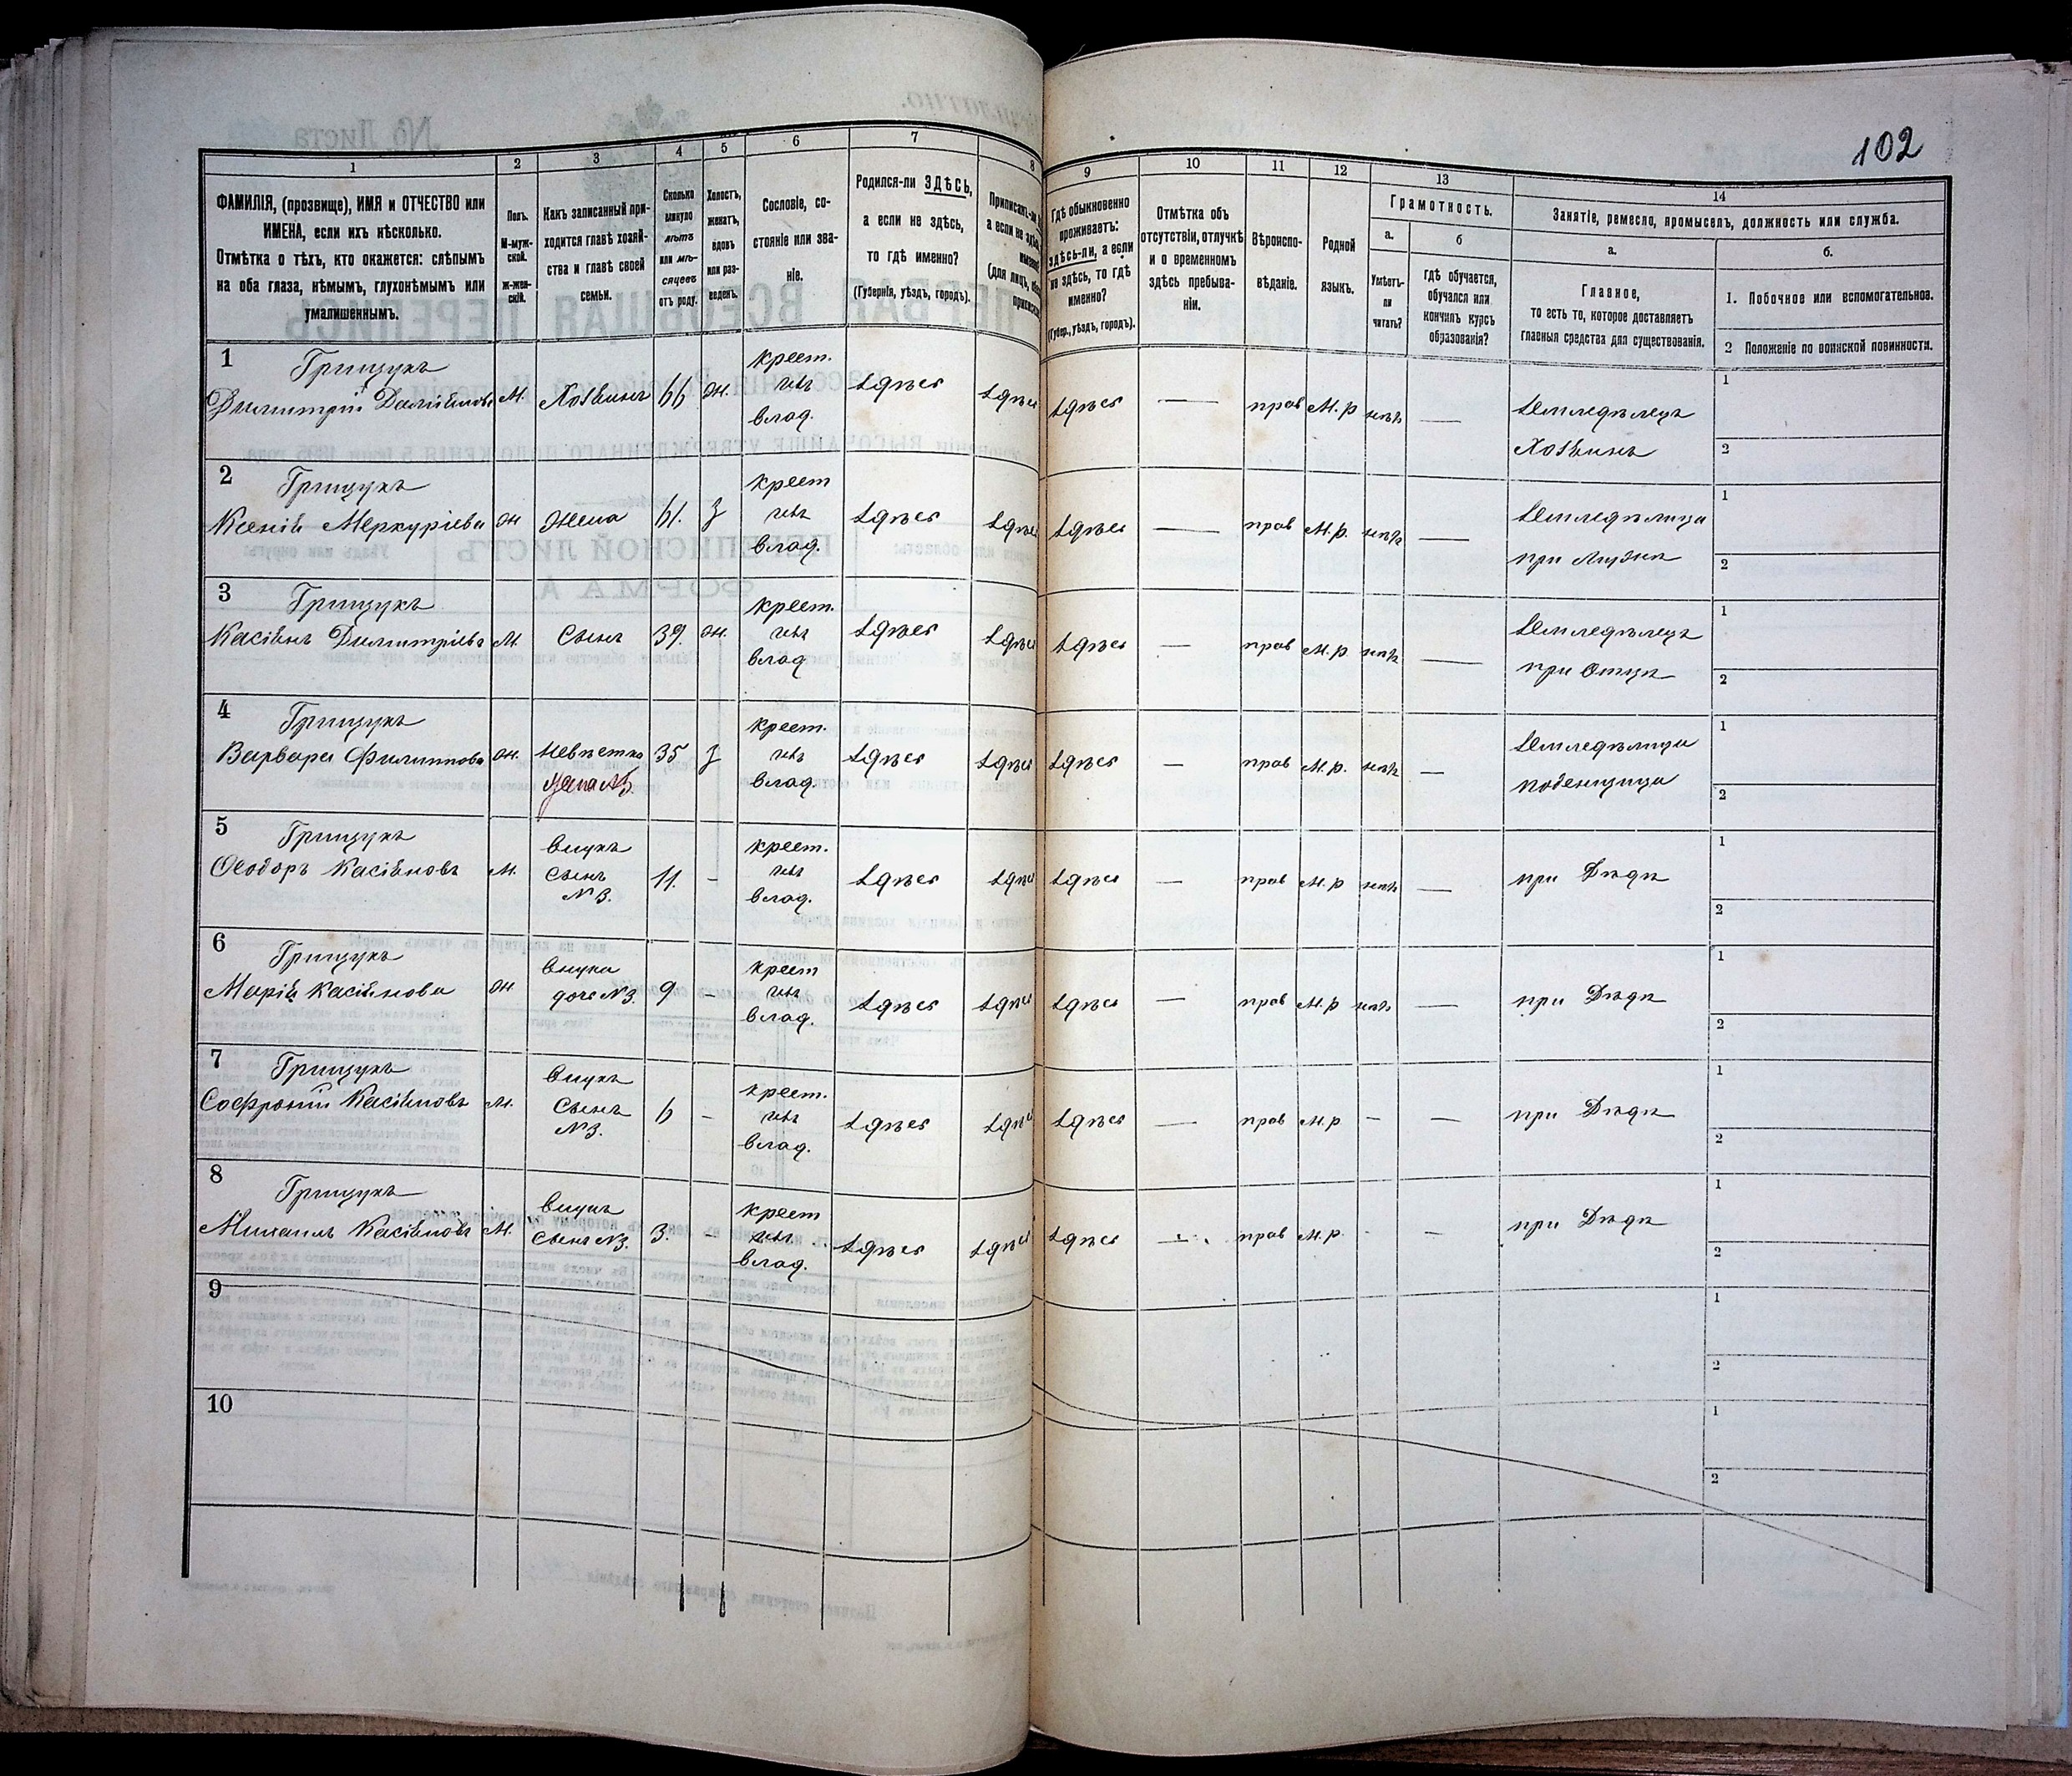 102
1
2
3
4
5
6
7
8
9
10
11
12
13
14
ФАМИЛІЯ, (прозвище), ИМЯ и ОТЧЕСТВО или
ИМЕНА, если ихъ нѣсколько.
Отмѣтка о тѣхъ, кто окажется: слѣпымъ
на оба глаза, нѣмымъ, глухонѣмымъ или
умалишеннымъ.
Полъ.
М-муж-
ской.
Ж-жен-
скій.
Какъ записанный при-
ходится главѣ хозяй-
ства и главѣ своей
семьи.
Сколько
минуло
лѣтъ
или мѣ-
сяцевъ
отъ роду.
Холостъ,
женатъ,
вдовъ
или раз-
веденъ.
Сословіе, со-
стояніе или зва-
ніе.
Родился-ли ЗДѢСЬ,
а если не здѣсь,
то гдѣ именно?
(Губернія, уѣздъ, городъ).
Гдѣ обыкновенно
проживаетъ:
здѣсь-ли, а если
не здѣсь, то гдѣ
именно?
(Губер., уѣздъ, городъ).
Отмѣтка объ
отсутствіи, отлучкѣ
и о временномъ
здѣсь пребыва-
ніи.
Вѣроиспо-
вѣданіе.
Родной
языкъ.
Грамотность.
а.
Умѣетъ-
ли
читать?
б
гдѣ обучается,
обучался или
кончилъ курсъ
образованія?
Занятіе, ремесло, промыселъ, должность или служба.
а.
Главное,
то есть то, которое доставляетъ
главныя средства для существованія.
б.
1. Побочное или вспомогательное.
2 Положеніе по воинской повинности.
1 Грицукъ
Димитрій Даніиловъ М. Хозяинъ 66 ж. крест. изъ влад. здѣсь здѣсь здѣсь — прав М.р нѣтъ — Земледѣлецъ Хозяинъ 1 2
2 Грицукъ
Ксенія Меркуріева ж жена 61. з крест изъ влад. здѣсь здѣсь здѣсь — прав М.р. нѣтъ — Земледѣлица при Мужѣ 1 2
3 Грицукъ
Касіянъ Димитріевъ М. Сынъ 39. ж. крест. изъ влад здѣсь здѣсь здѣсь — прав М.р нѣтъ — Земледѣлецъ при Отцѣ 1 2
4 Грицукъ
Варвара Филиппова ж. Невѣстка жена №3. 35 з крест. изъ влад. здѣсь здѣсь здѣсь — прав М.р. нѣтъ — Земледѣлица поденщица 1 2
5 Грицукъ
Ѳеодоръ Касіяновъ М. внукъ Сынъ №3. 11. - крест. изъ влад. здѣсь здѣсь здѣсь — прав М.р нѣтъ — при Дѣдѣ 1 2
6 Грицукъ
Марія Касіянова ж внука дочь №3. 9 - крест изъ влад. здѣсь здѣсь здѣсь — прав М.р нѣтъ — при Дѣдѣ 1 2
7 Грицукъ
Софроній Касіяновъ М. внукъ Сынъ №3. 6 - крест. изъ влад. здѣсь здѣсь здѣсь — прав М.р. - — при Дѣдѣ 1 2
8 Грицукъ
Михаилъ Касіяновъ М. внукъ Сынъ №3. 3. - крест изъ влад. здѣсь здѣсь здѣсь — прав М.р. - — при Дѣдѣ 1 2
9 1 2
10 1 2